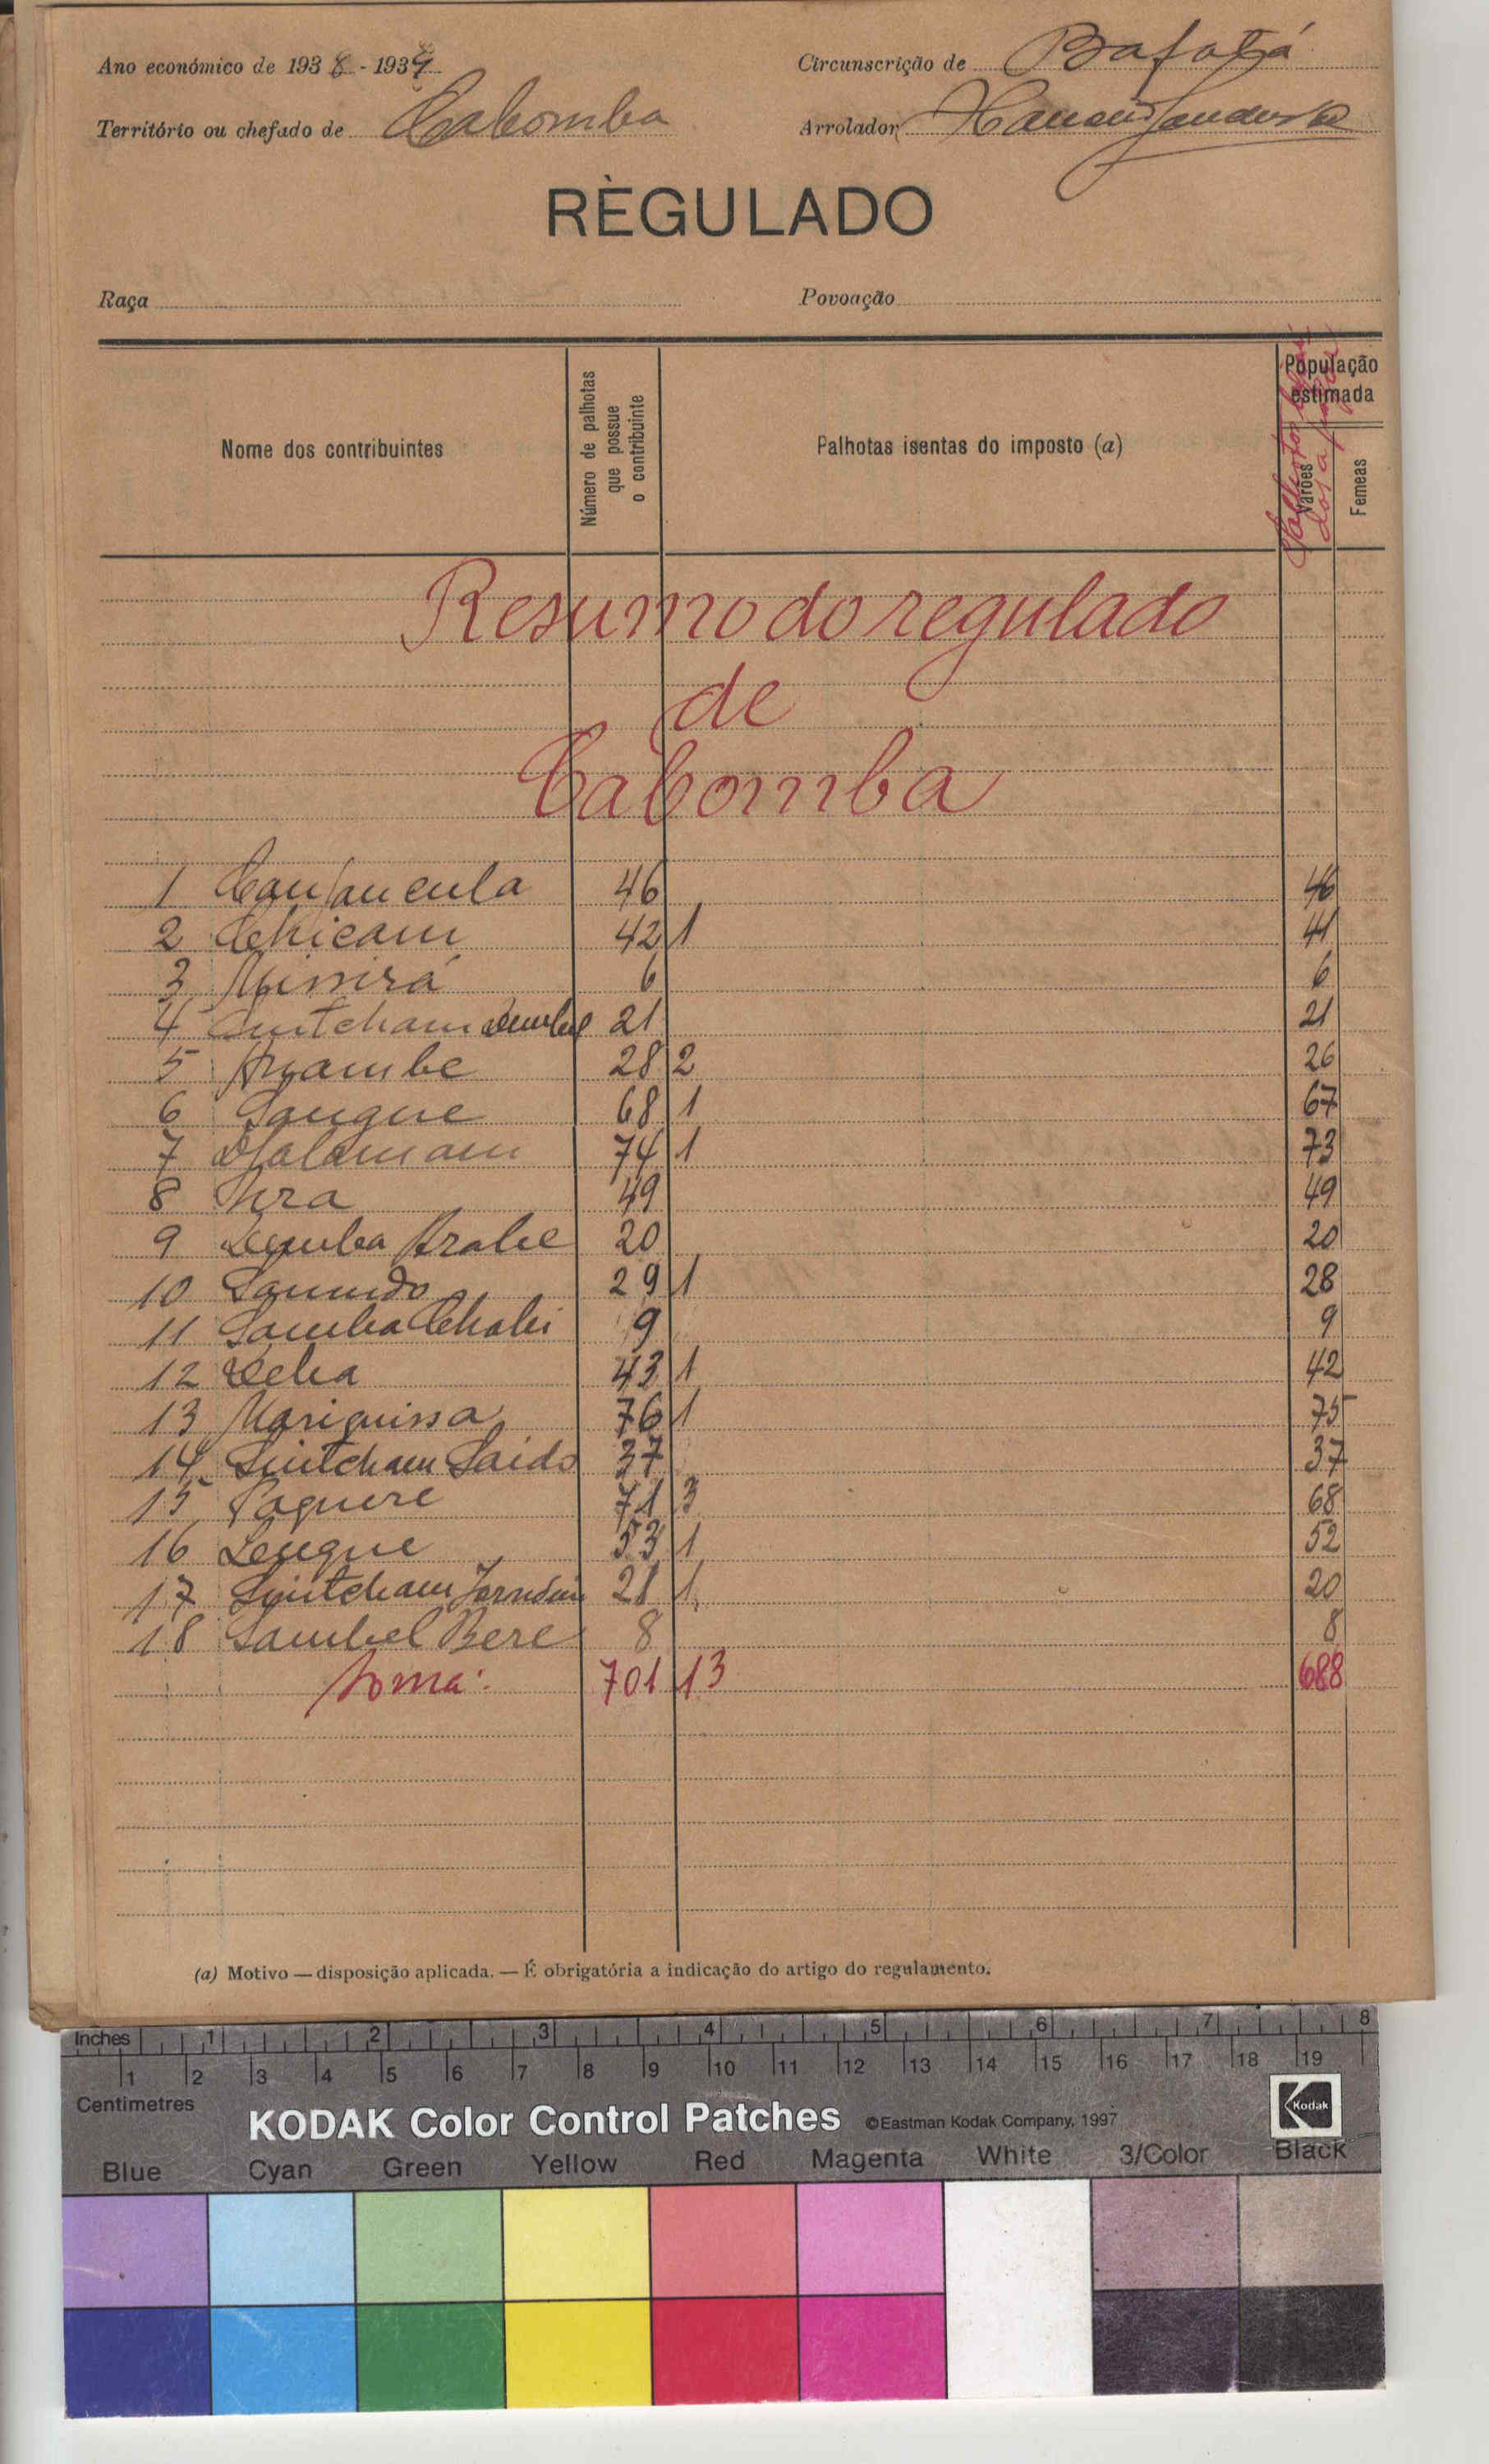 Ano económico de 1938 - 1939 Circunscrição de Bafatá
Território ou chefado de Cabomba Arrolador
RÈGULADO
Raça Povoação
Nome dos contribuintes
Número de palhotas que possue o contribuinte
Palhotas isentas do imposto (a)
População estimada
Varões
Femeas
Resumo do regulado
de
Cabomba
1 Canjancula 46 46
2 Chicam 42 1 41
3 Missirá 6 6
4 Sintcham Dembel 21 21
5 28 2 26
6 Sangue 68 1 67
7 74 1 73
8 49 49
9 Demba Arabe 20 20
10 29 1 28
11 Samba Chabi 9 9
12 43 1 42
13 Mariguissa 76 1 75
14 Sintcham Saido 37 37
15 71 3 68
16 Lengue 53 1 52
17 Sintcham 21 1 20
18 Sambel Bere 8 8
Soma: 701 13 688
(a) Motivo — disposição aplicada. — É obrigatória a indicação do artigo do regulamento.
Inches 1 2 3 4 5 6 7 8
1 2 3 4 5 6 7 8 9 10 11 12 13 14 15 16 17 18 19
Centimetres
KODAK Color Control Patches ©Eastman Kodak Company, 1997 Kodak
Blue Cyan Green Yellow Red Magenta White 3/Color Black